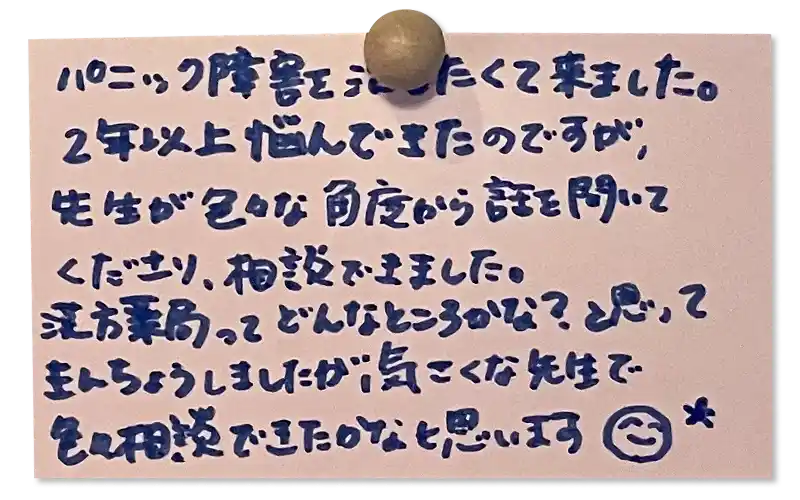 パニック障害を治したくて来ました。
2年以上悩んできたのですが、
先生が色々な角度から話を聞いて
くださり、相談できました。
漢方薬局ってどんなところかな?と思って
きんちょうしましたが、気さくな先生で
色々相談できたかなと思います